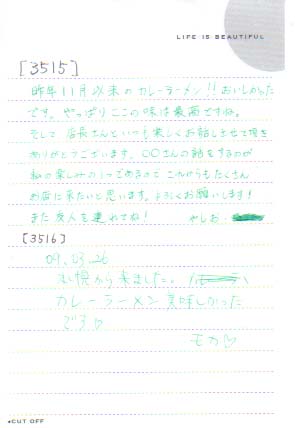 LIFE IS BEAUTIFUL
[3515]
昨年11月以来のカレーラーメン!!おいしかった
です。やっぱりここの味は最高ですね。
そして店長さんといつも楽しくお話しさせて頂き
ありがとうございます。〇〇さんの話をするのが
私の楽しみの1つであるので これからもたくさん
お店に来たいと思います。よろしくお願いします!
また友人を連れてね! やしお
[3516]
09.03.26
札幌から来ました。
カレーラーメン美味しかった
です♡
モカ♡
◂CUT OFF